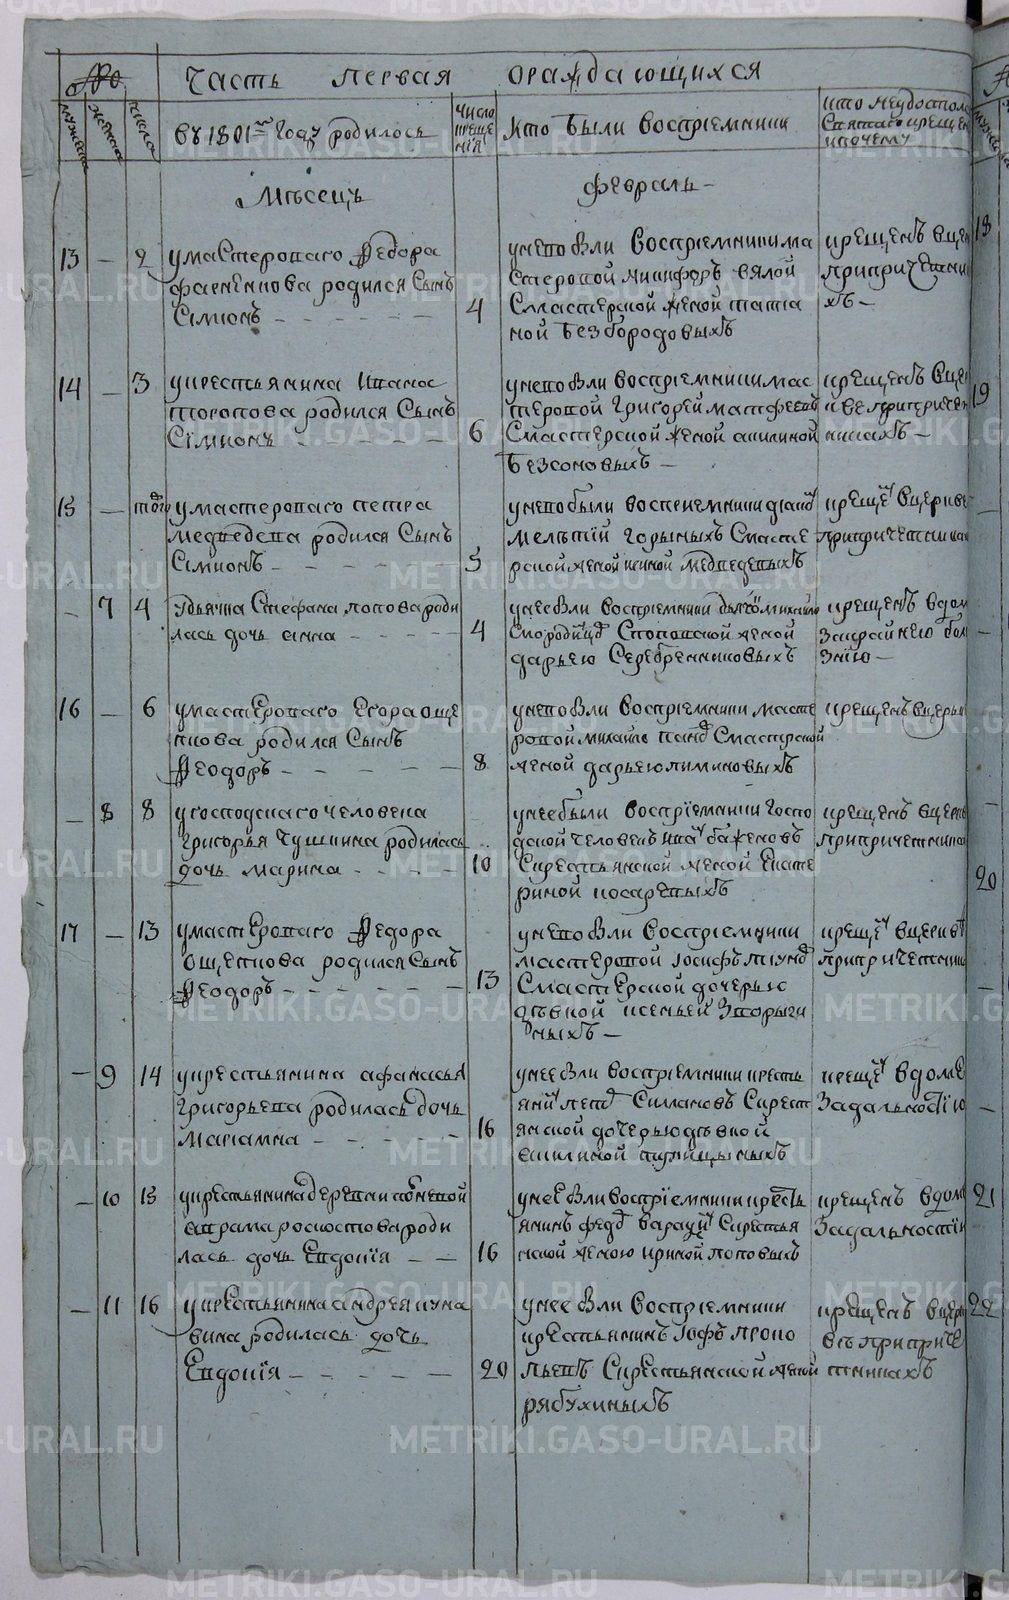 №
Часть первая о раждающихся
мужеска
женска
числа
въ 1801мъ году родилось
число креще нїя
кто были воспрїемники
кто неудостоил
святаго креще
и почему
Мѣсецъ февраль
13 — 2 у мастероваго Федора
фаененова родился сынъ
Сімионъ
4
у него бли воспрїемники ма
стеровой никифоръ вялой
с мастерской женой татя
ной безбородовыхъ
крещенъ в цер
при причетни
хъ —
14 — 3 у крестьянина ивана
торопова родился сынъ
Сїмионъ
6
у него бли воспрїемники мас
теровой григорей матфеевъ
с мастерской женой акилиной
безсоновыхъ —
крещенъ в це
кве при причет
никахъ —
15 — того у мастероваго петра
медведева родился сынъ
Сїмионъ
5
у него были воспиемники
мелетїй горыныхъ с масте
рской женой медведевыхъ
креще в церкве
при причетника
— 7 4 у дьячка Стефана попова роди
лась дочь анна
4
у нее бли воспрїемники михаило
с поповской женой
дарьею Серебренниковыхъ
крещенъ в дом
за крайнею бол
знїю —
16 — 6 у мастероваго Егора още
пкова родился сынъ
Феодоръ
8
у него бли воспрїемники масте
ровой михаило с мастрской
женой дарьею пиминовыхъ
крещенъ в церкв
— 8 8 у господскаго человека
григорья чушкина родилась
дочь марина
10
у нее были воспрїемники госпо
дской человекъ ива баженовъ
с крестьянской женой екате
риной косаревыхъ
крещенъ в церкв
при причетника
17 — 13 у мастероваго Федора
ощепкова родился сынъ
Феодоръ
13
у него бли воспрїемники
мастеровой іосифъ
с мастерской дочерью
девкой ксеньей Зворыги
ныхъ —
креще в церквѣ
при причетник
— 9 14 у крестьянина афанасья
григорьева родилась дочь
марїамна
16
у нее бли воспрїемники кресть
яни петр Симановъ с крест
янской дочерью девкой
акилиной тупицыныхъ
креще в доме
за дальностїю
— 10 15 у крестьянина деревни
аврама роскостова роди
лась дочь Евдокїя
16
у нее бли воспрїемники кресть
янинъ фед с крестья
нской женою ириной поповыхъ
крещенъ в доме
за дальностїю
— 11 16 у крестьянина андрея куна
вина родилась дочь
Евдокїя
20
у нее бли воспрїемники
крестьянинъ іофъ проко
пьевъ с крестьянской женой
рябухиныхъ
крещенъ в церк
вѣ при приче
тникахъ
18
19
20
21
22
METRIKI.GASO-URAL.RU